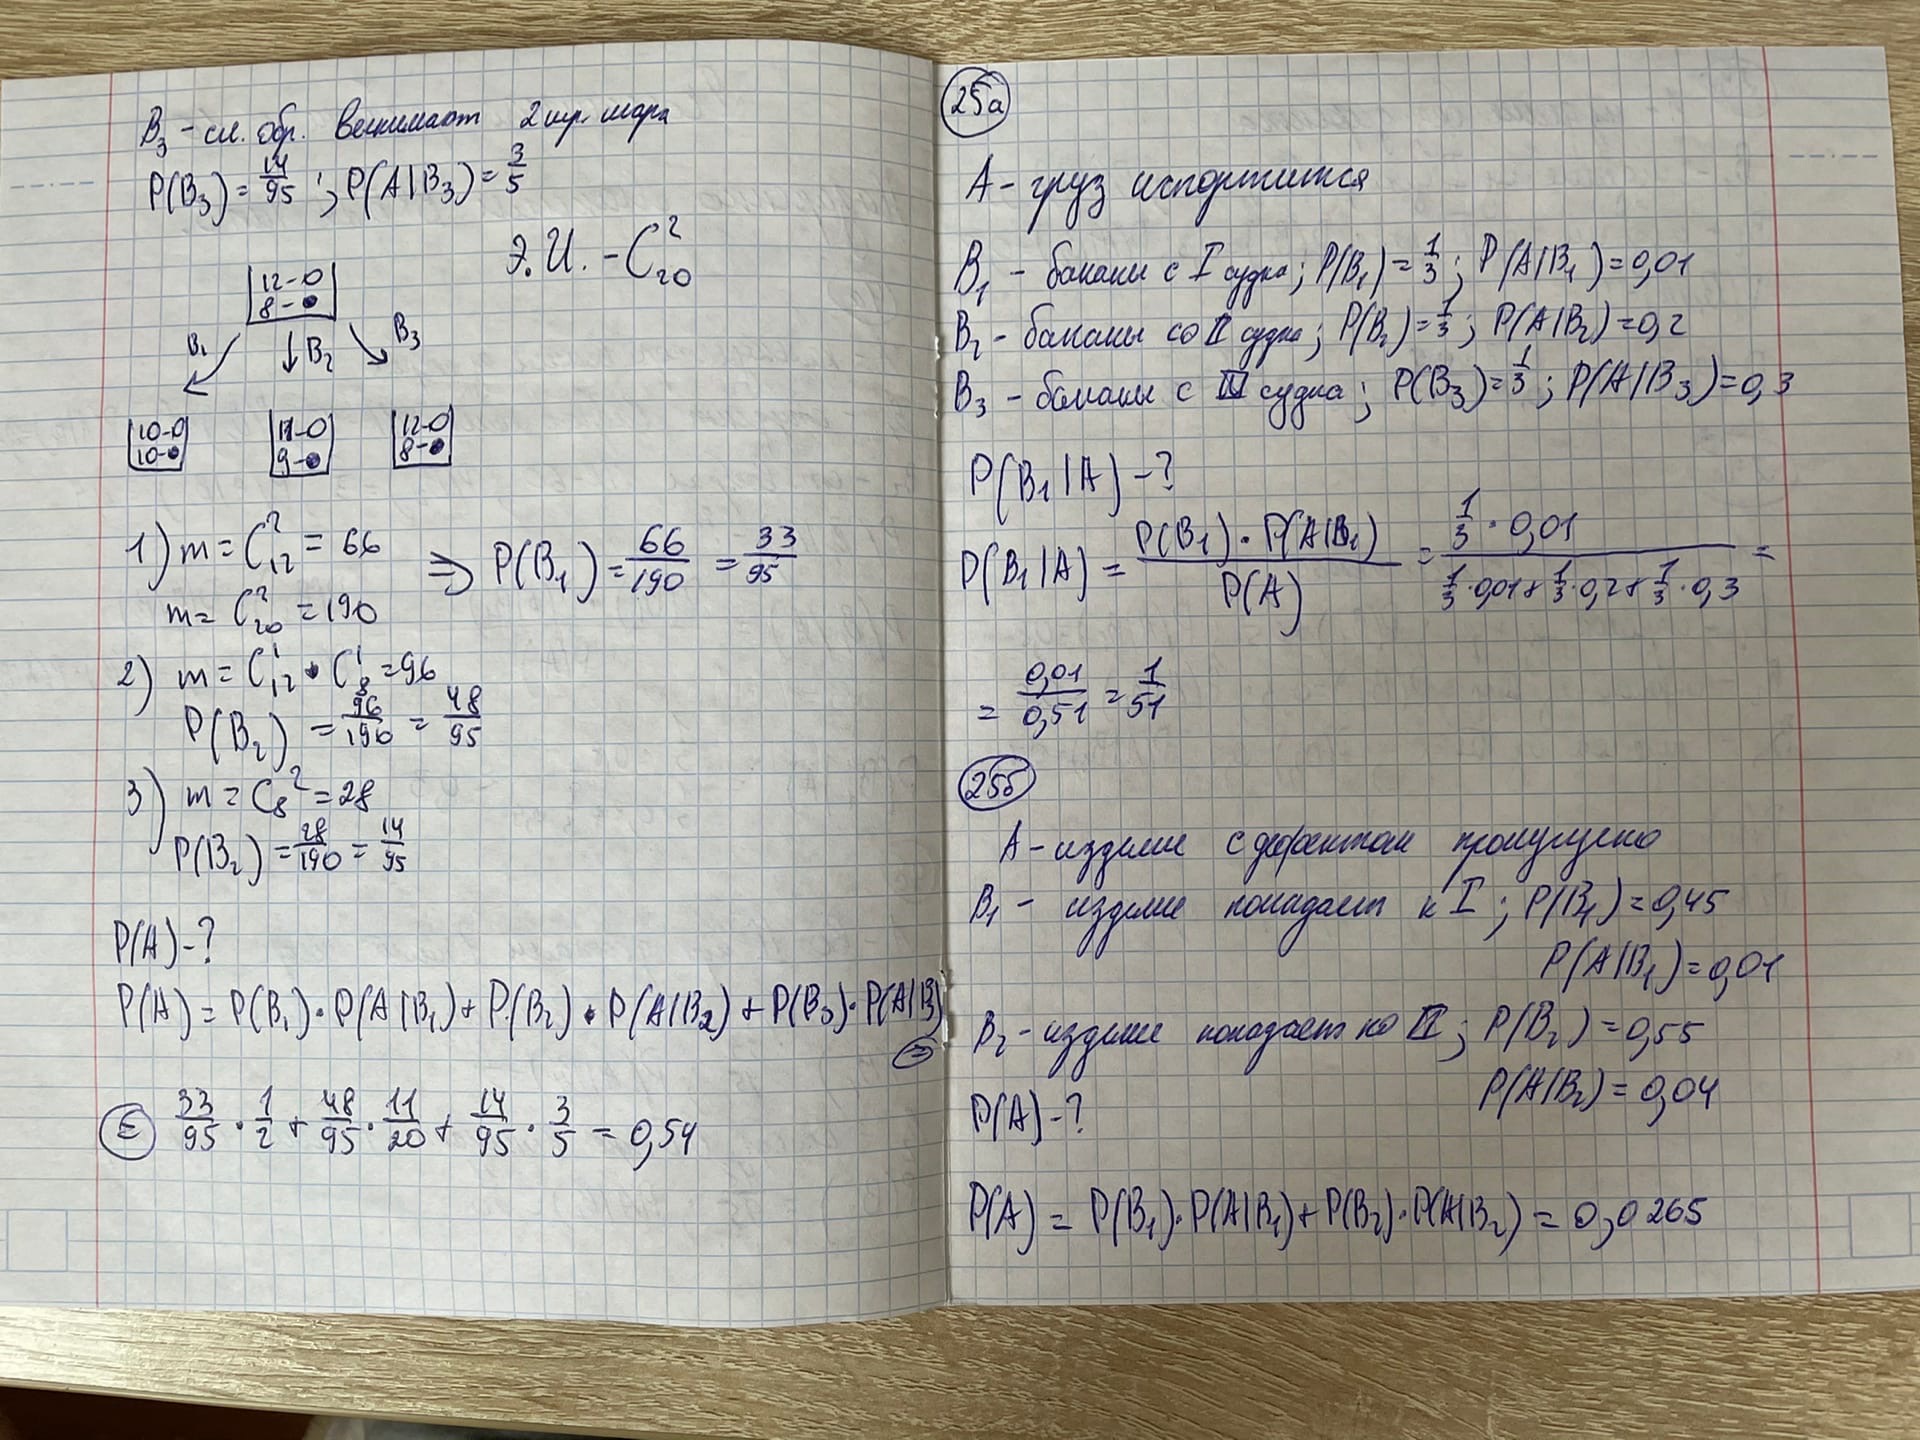 B₃ - сл. обр. вынимают 2 чёр. шара
P(B₃) = 14/95 ; P(A|B₃) = 3/5
Э.И. - C₂₀²
12-О
8-●
B₁
B₂
B₃
10-О
10-●
11-О
9-●
12-О
8-●
1) m = C₁₂² = 66
m = C₂₀² = 190
⇒ P(B₁) = 66/190 = 33/95
2) m = C₁₂¹ • C₈¹ = 96
P(B₂) = 96/190 = 48/95
3) m = C₈² = 28
P(B₂) = 28/190 = 14/95
P(A) - ?
P(A) = P(B₁) · P(A|B₁) + P(B₂) · P(A|B₂) + P(B₃) · P(A|B₃)
=
= 33/95 · 1/2 + 48/95 · 11/20 + 14/95 · 3/5 = 0,54
25а
A - груз испортится
B₁ - бананы с I судна; P(B₁) = 1/3; P(A|B₁) = 0,01
B₂ - бананы со II судна; P(B₂) = 1/3; P(A|B₂) = 0,2
B₃ - бананы с III судна; P(B₃) = 1/3; P(A|B₃) = 0,3
P(B₁|A) - ?
P(B₁|A) = P(B₁) · P(A|B₁) / P(A) = 1/3 · 0,01 / 1/3 · 0,01 + 1/3 · 0,2 + 1/3 · 0,3 =
= 0,01/0,51 = 1/51
25б
A - изделие с дефектом пропущено
B₁ - изделие попадает к I ; P(B₁) = 0,45
P(A|B₁) = 0,01
B₂ - изделие попадает ко II ; P(B₂) = 0,55
P(A|B₂) = 0,04
P(A) - ?
P(A) = P(B₁) · P(A|B₁) + P(B₂) · P(A|B₂) = 0,0265